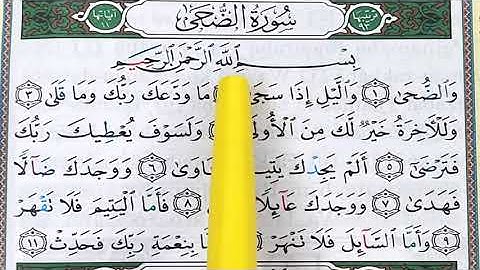 ترتيبها ٩٣ سُورَةُ الضُّحَى آياتها ١١
بِسْمِ اللَّهِ الرَّحْمَٰنِ الرَّحِيمِ
وَالضُّحَىٰ ١ وَالَّيْلِ إِذَا سَجَىٰ مَا وَدَّعَكَ رَبُّكَ وَمَا قَلَىٰ ٣
وَلَلْآخِرَةُ خَيْرٌ لَّكَ مِنَ الْأُولَىٰ وَلَسَوْفَ يُعْطِيكَ رَبُّكَ
فَتَرْضَىٰ ٥ أَلَمْ يَجِدْكَ ٦ وَوَجَدَكَ ضَآلًّا
فَهَدَىٰ ٧ وَوَجَدَكَ عَآئِلًا ٨ فَأَمَّا الْيَتِيمَ فَلَا تَقْهَرْ
٩ وَأَمَّا السَّآئِلَ فَلَا تَنْهَرْ بِنِعْمَةِ رَبِّكَ فَحَدِّثْ ١١